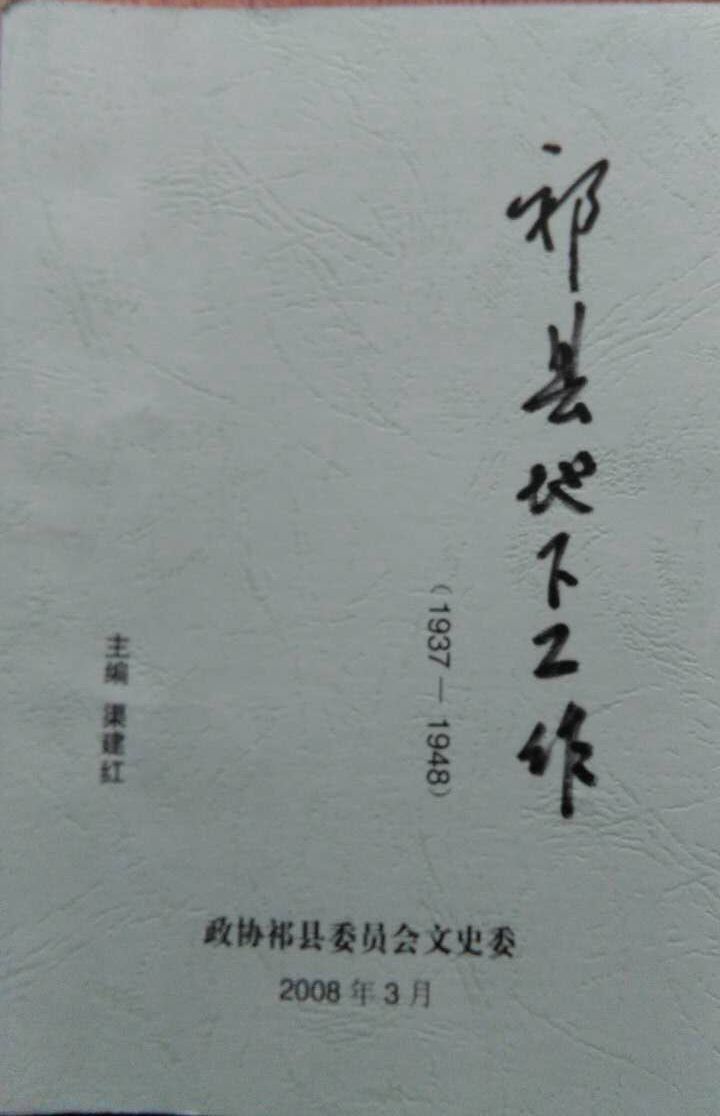 祁县地下工作
（1937—1948）
主编 渠建红
政协祁县委员会文史委
2008 年 3 月